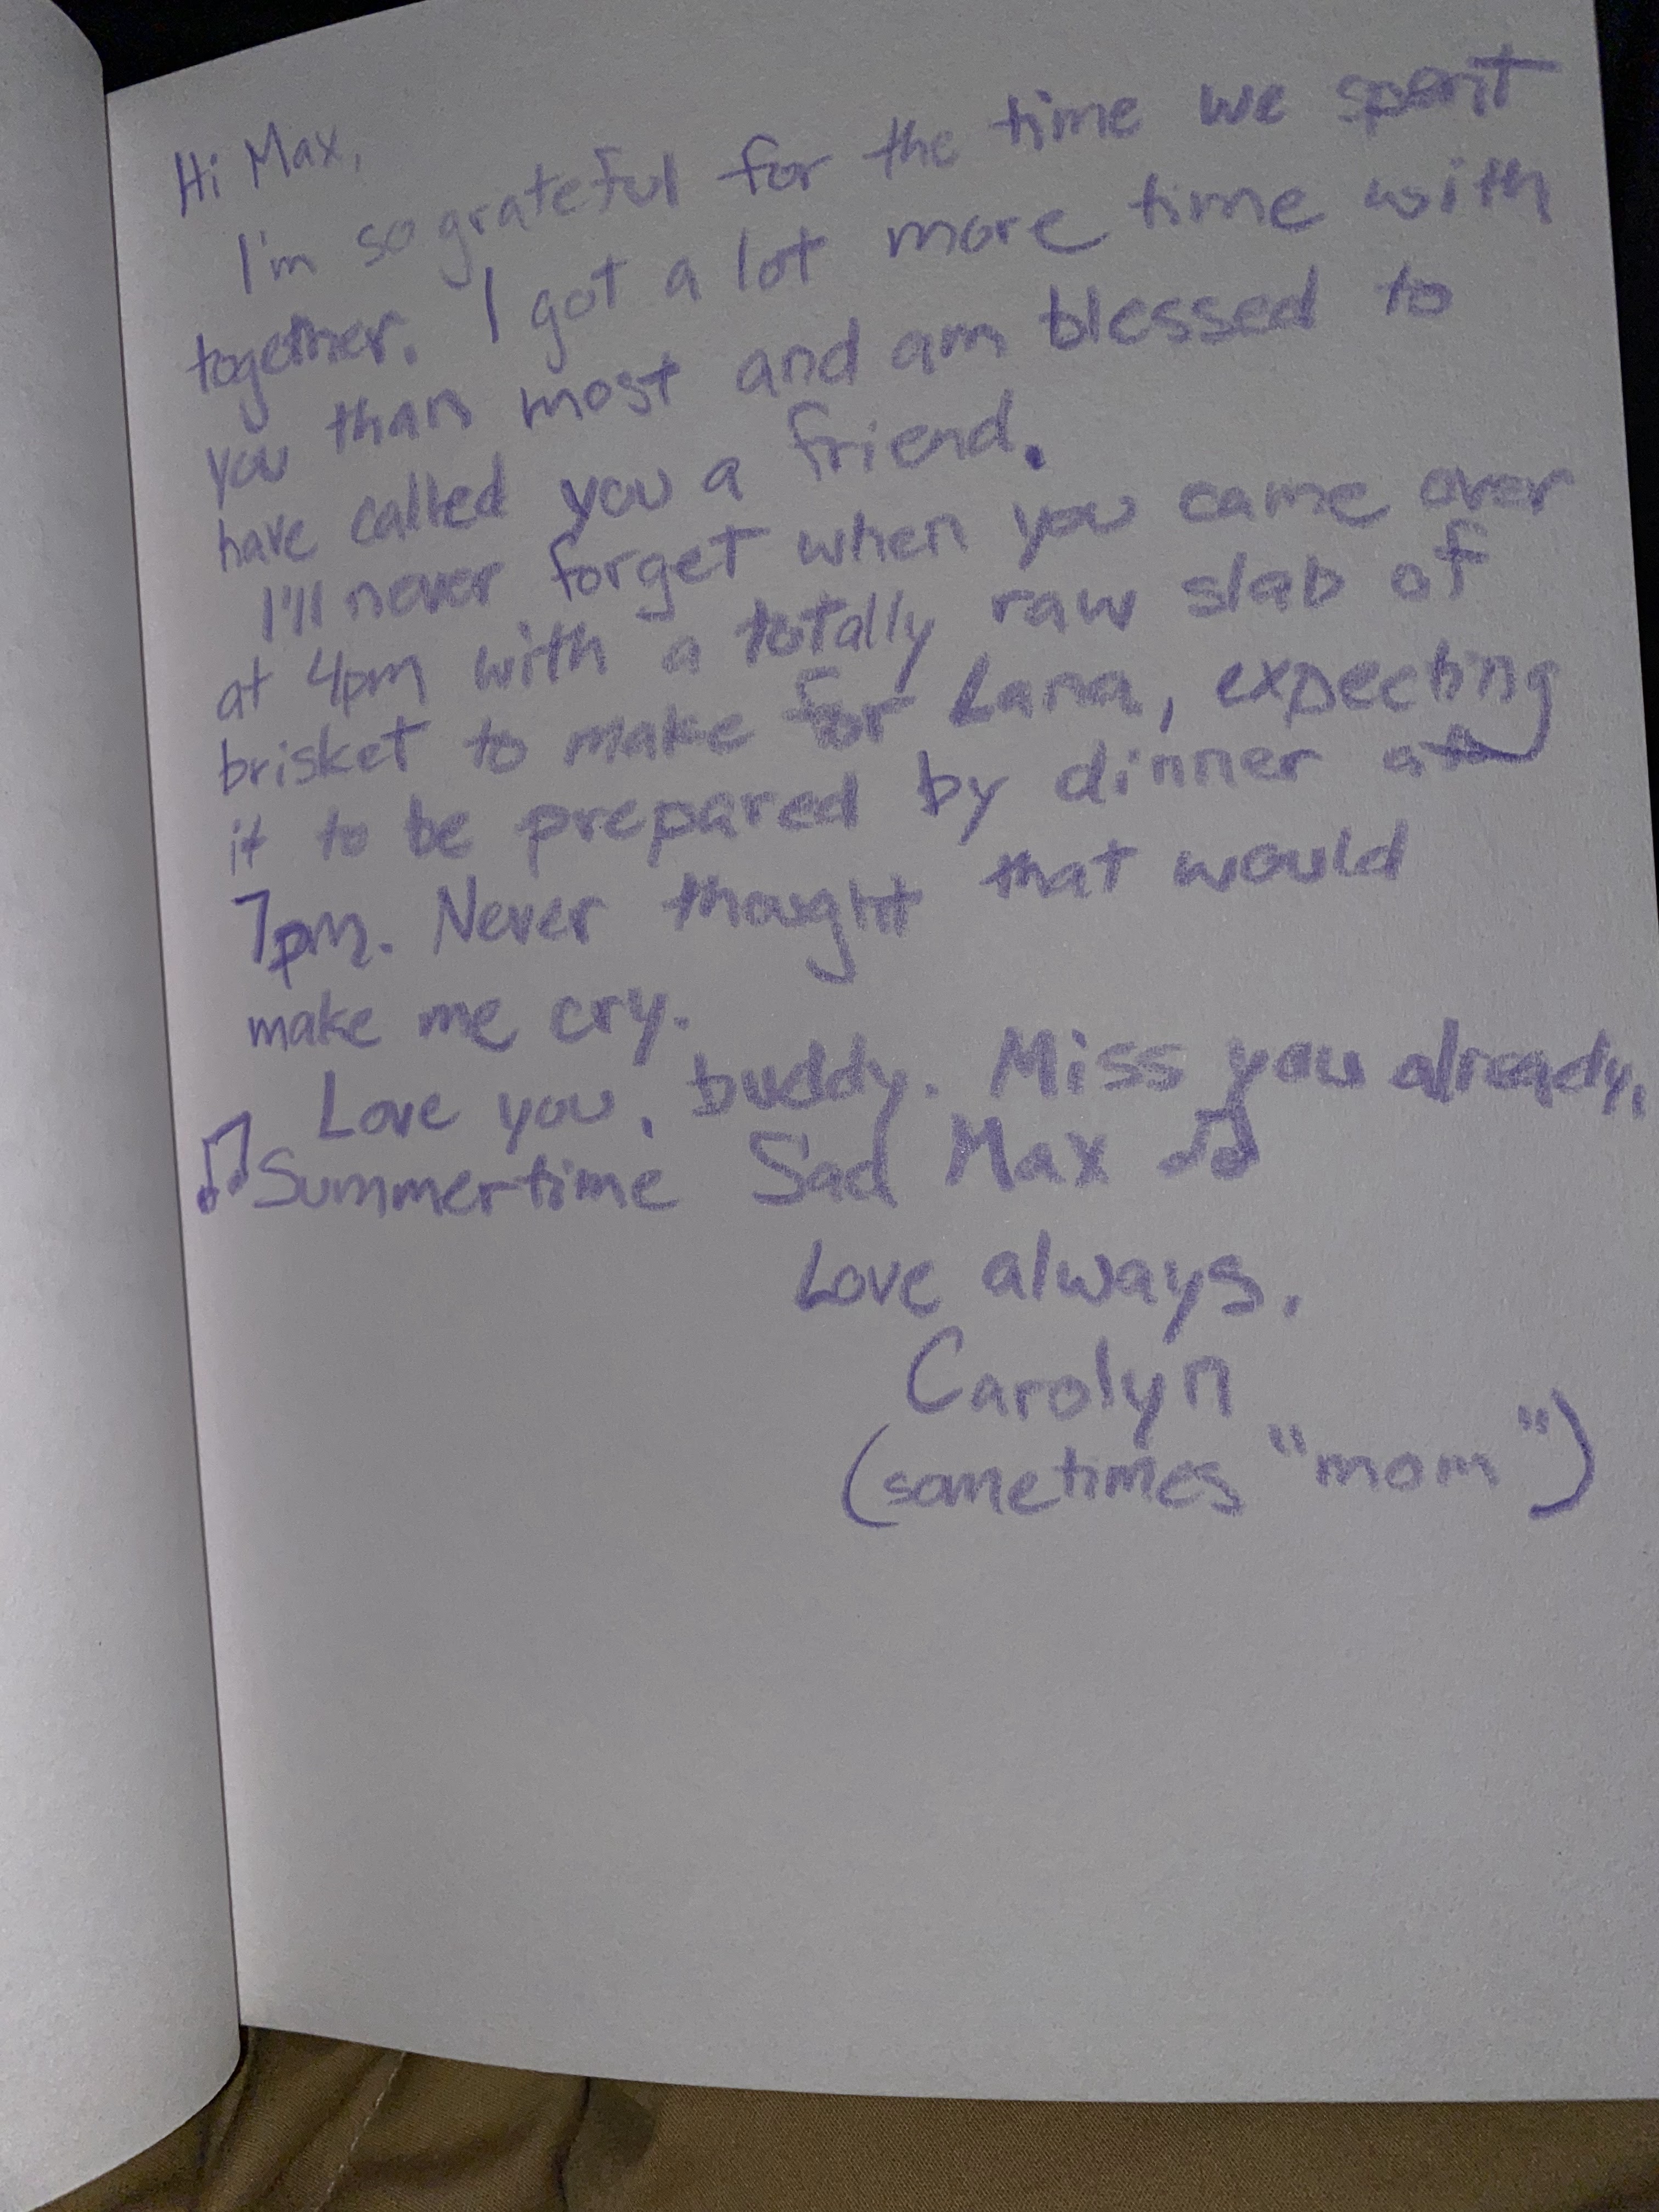 Hi Max,
I'm so grateful for the time we spent
together. I got a lot more time with
you than most and am blessed to
have called you a friend.
I'll never forget when you came over
at 4pm with a totally raw slab of
brisket to make for Lana, expecting
it to be prepared by dinner at
7pm. Never thought that would
make me cry.
Love you, buddy. Miss you already,
♫ Summertime Sad Max ♫
Love always,
Carolyn
(sometimes "mom")